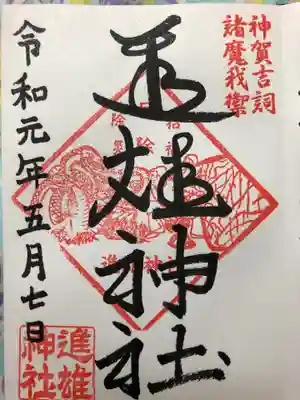 神賀吉詞
諸魔我禦
進雄神社
令和元年五月七日
進雄
神社